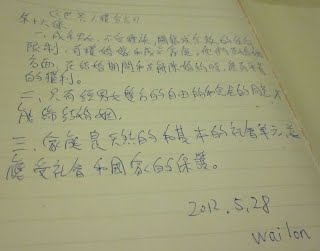 《世界人權宣言》
第十六條
一、成年男女,不受種族、國籍或宗教的任何
限制,有權婚嫁和成立家庭。他們在婚姻
方面,在結婚期間和在解除婚約時,應有平等
的權利。
二、只有經男女雙方的自由的和完全的同意,才
能締結婚姻。
三、家庭是天然的和基本的社會單元,並
應受社會和國家的保護。
2012.5.28
wailon